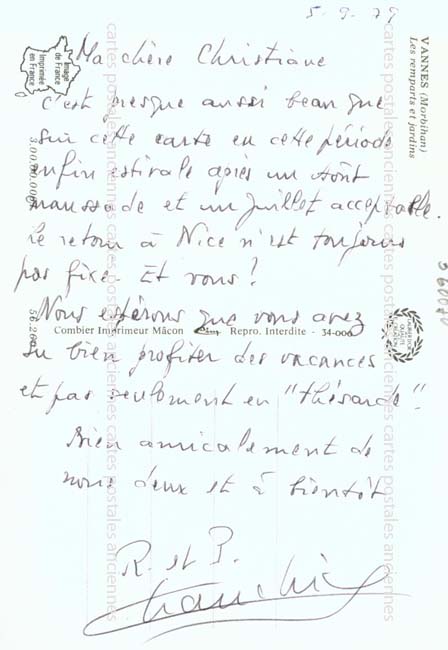 5-9-79
Ma chère Christiane
c'est presque aussi beau que
sur cette carte en cette période
enfin estivale après un août
maussade et un juillet acceptable.
Le retour à Nice n'est toujours
pas fixé. Et vous?
Nous espérons que vous avez
su bien profiter des vacances
et pas seulement en "thésarde".
Bien amicalement de
nous deux et à bientôt
R. et P.
VANNES (Morbihan)
Les remparts et jardins
Image
de France
Imprimée
en France
3.00.00.0068
56.260
Combier Imprimeur Mâcon
Repro. Interdite - 34-000
cartes postales anciennes cartes postales anciennes cartes postales anciennes
cartes postales anciennes cartes postales anciennes cartes postales anciennes